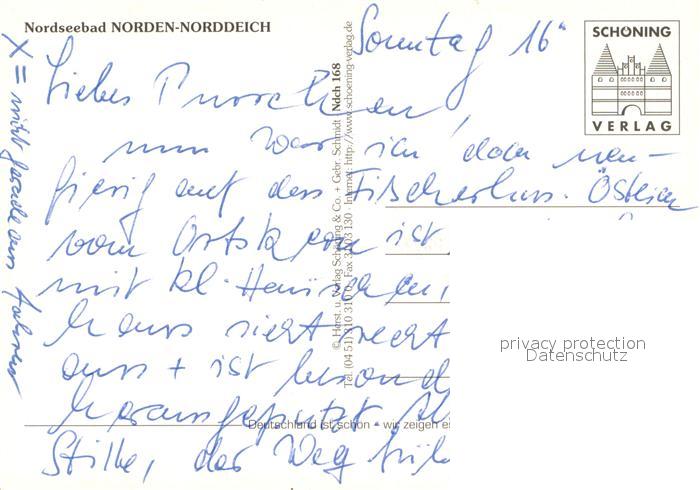 Nordseebad NORDEN-NORDDEICH
Sonntag 16
SCHÖNING
VERLAG
Liebes
nun war ich doch neu-
gierig auf das Fischerhaus. Östlich
vom Ortskern ist
mit kl. Häuschen,
Haus sieht recht
aus + ist besond
herausgeputzt.
Stille, der Weg
X = nicht gerade aus
© Herst. u. Verlag Schöning & Co. + Gebr. Schmidt Ndch 168
Tel. (04 51) 310 310 Fax 3 103 130 Internet: http://www.schoening-verlag.de
Deutschland ist schön - wir zeigen es
privacy protection
Datenschutz